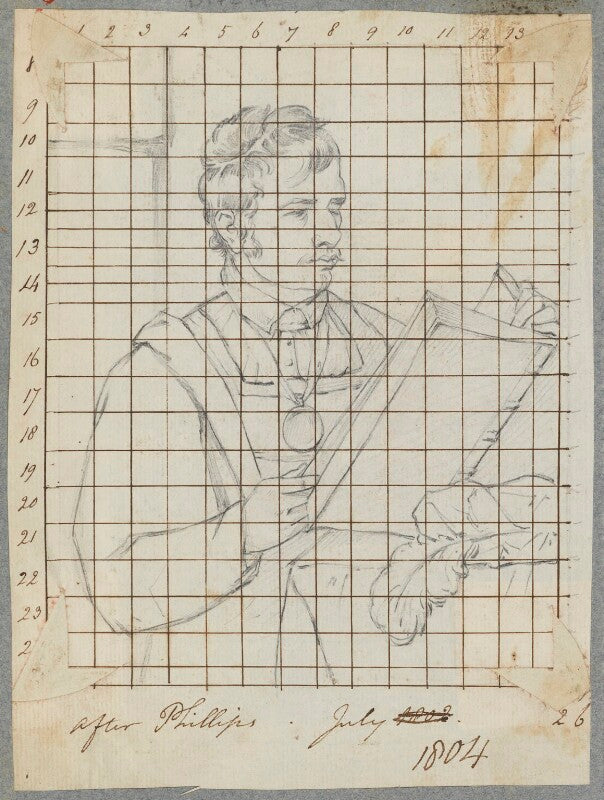 1 2 3 4 5 6 7 8 9 10 11 12 13
8
9
10
11
12
13
14
15
16
17
18
19
20
21
22
23
2
after Phillips . July 1803.
26
1804